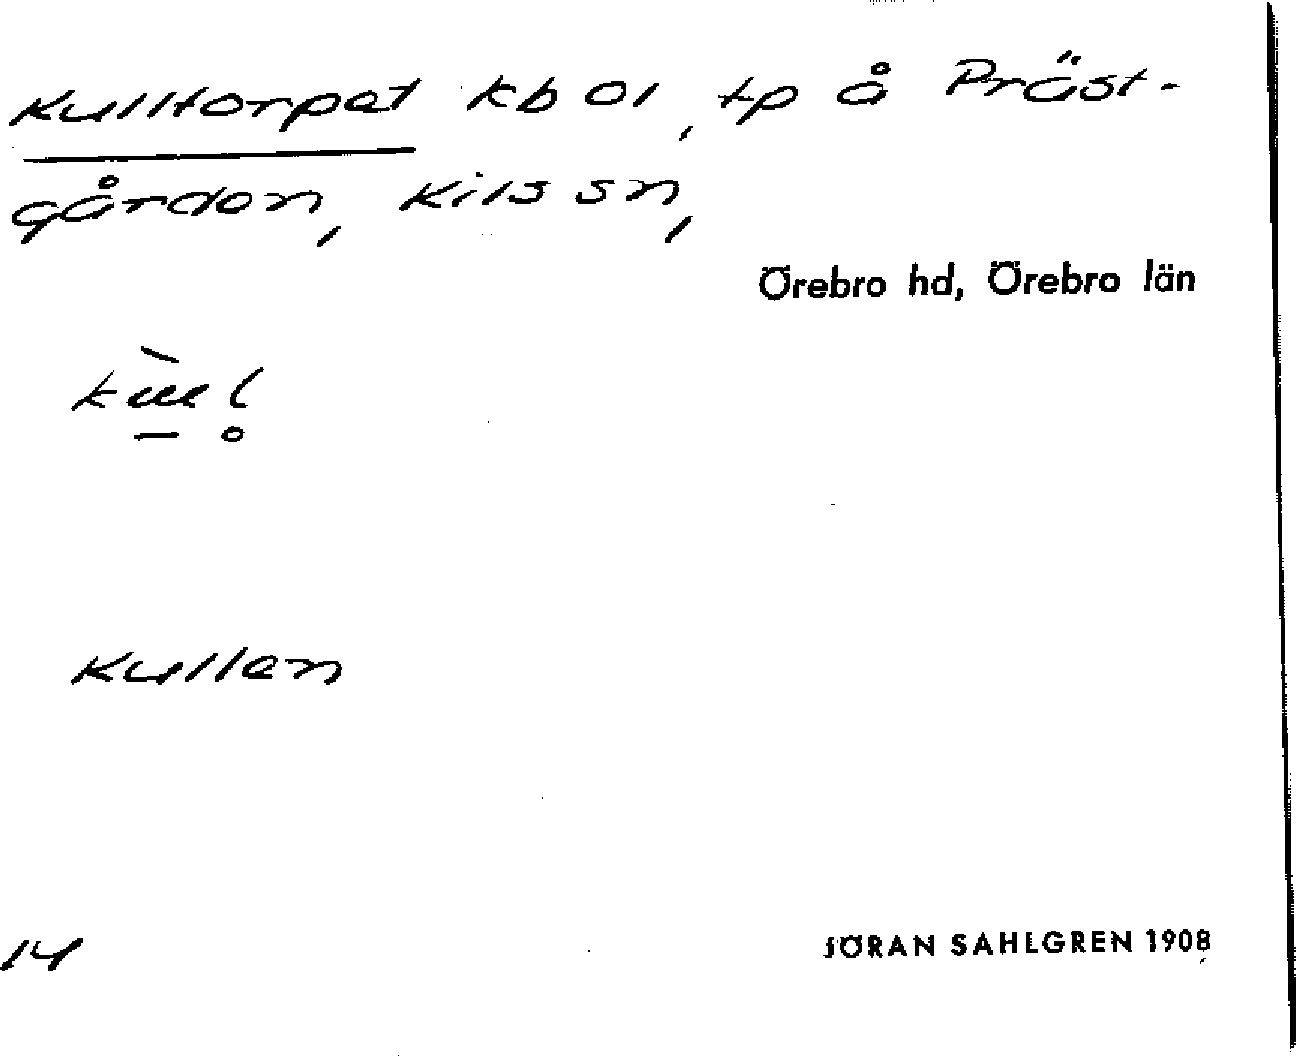 Kulltorpet kb 01, tp å Präst-
gården, Kils sn,
Örebro hd, Örebro län
Kullen
14
JÖRAN SAHLGREN 1908